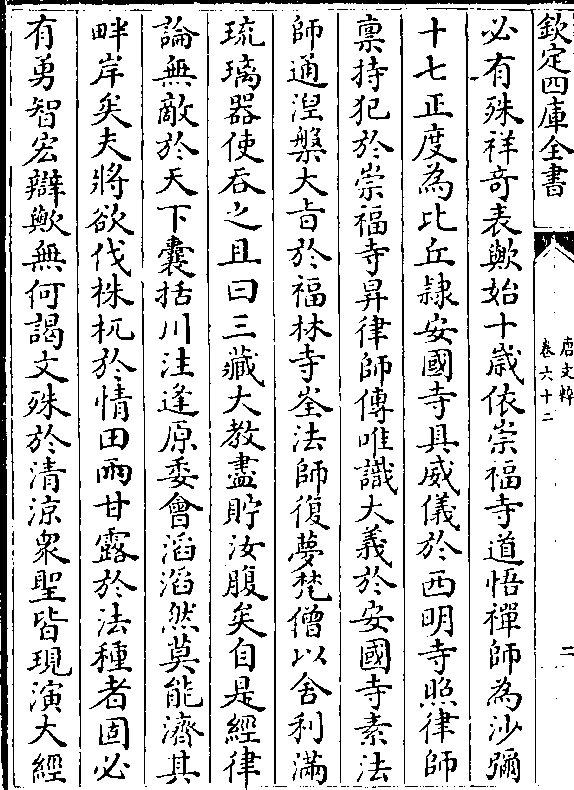 欽定四庫全書
唐文粹
卷六十二
二
必有殊祥奇表歟始十歲依崇福寺道悟禪師為沙彌
十七正度為比丘隸安國寺具威儀於西明寺照律師
禀持犯於崇福寺昇律師傳唯識大義於安國寺素法
師通涅槃大㫖於福林寺崟法師復夢梵僧以舍利滿
琉璃器使吞之且曰三藏大教盡貯汝腹矣自是經律
論無敵於天下囊括川注逢原委會滔滔然莫能濟其
畔岸矣夫將欲伐株杌於情田雨甘露於法種者固必
有勇智宏辯歟無何謁文殊於清涼衆聖皆現演大經